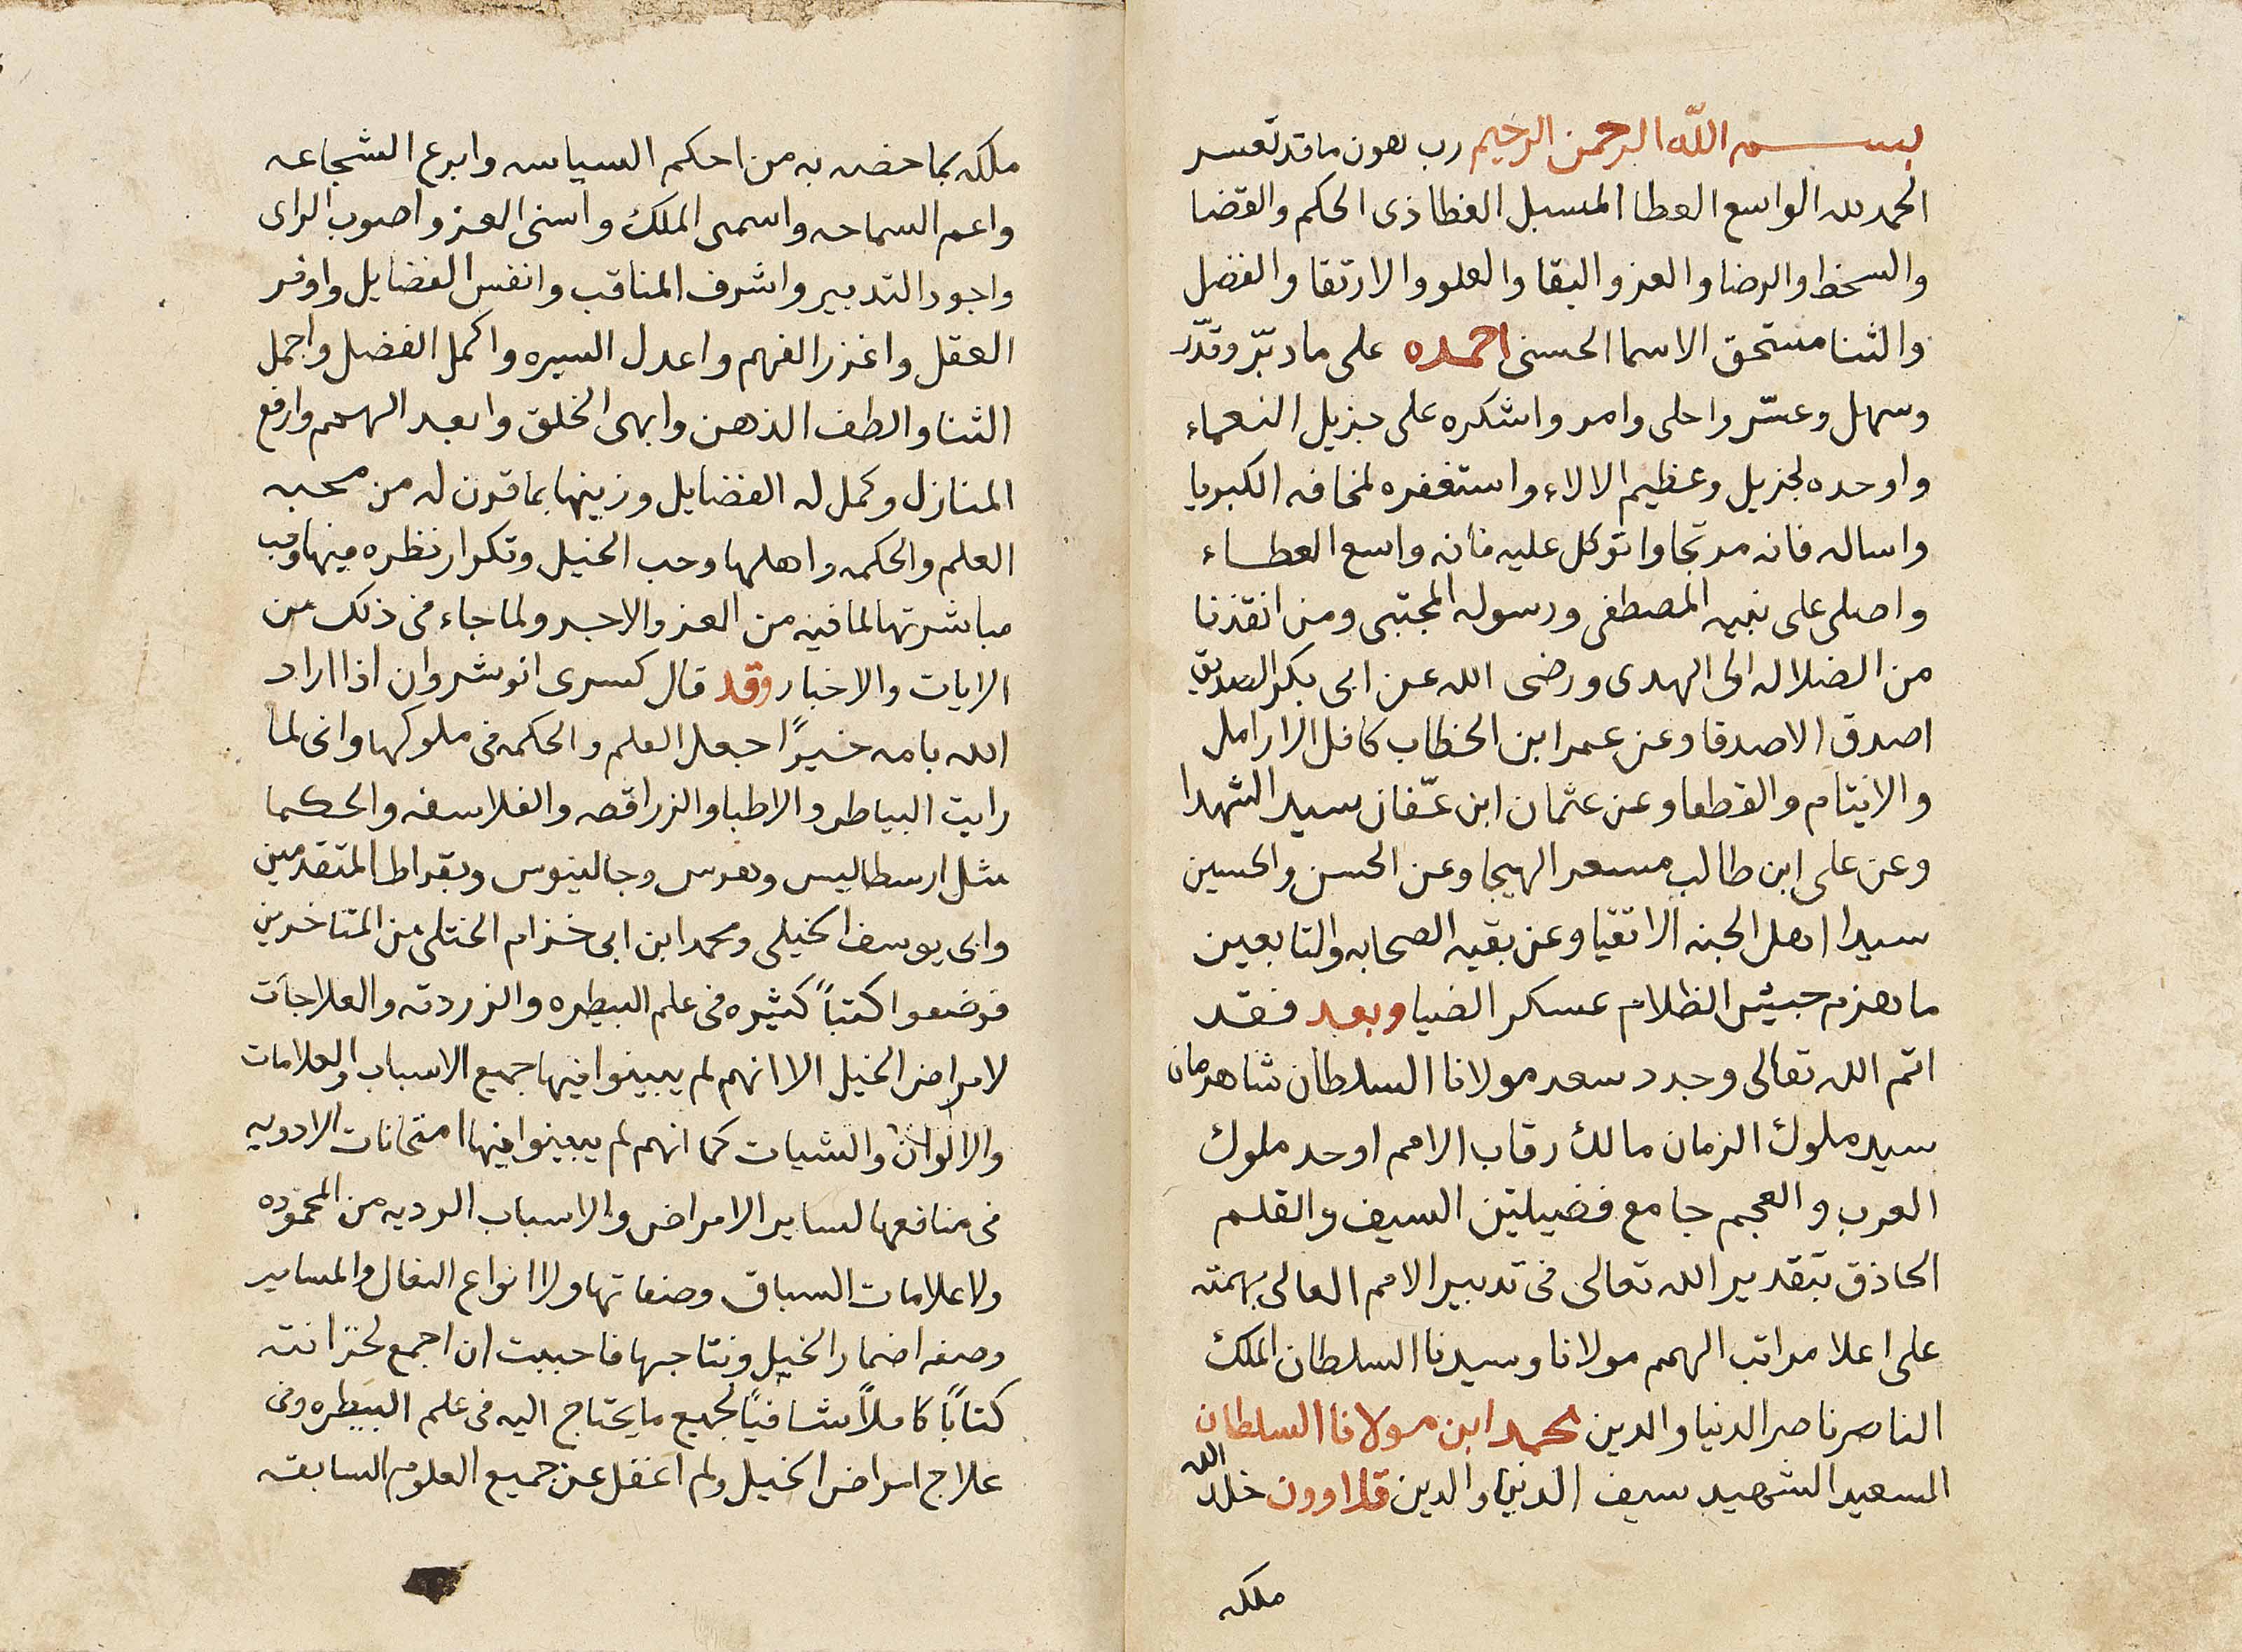 بسم الله الرحمن الرحيم رب هون ما قد تعسر
الحمد لله الواسع العطا المسبل الغطا ذى الحكم والقضا
والسخط والرضا والعز والبقا والعلو والارتقا والفضل
والثنا مستحق الاسما الحسنى احمده على ما دبّر وقدّر
وسهل وعسّر واحلى وامر واشكره على جزيل النعماء
واوحده لجزيل وعظيم الالاء واستغفره لمخافه الكبريا
واساله فانه مرتجا واتوكل عليه فانه واسع العطاء
واصلى على نبيه المصطفى ورسوله المجتبى ومن انقذنا
من الضلاله الى الهدى ورضى الله عن ابى بكر الصديق
اصدق الاصدقا وعن عمر ابن الخطاب كافل الارامل
والايتام والقطعا وعن عثمان ابن عفّان سيد الشهدا
وعن على ابن طالب مسعر الهيجا وعن الحسن والحسين
سيدا اهل الجنه الاتقيا وعن بقيه الصحابه والتابعين
ما هزم جيش الظلام عسكر الضيا وبعد فقد
اتم الله تعالى وجدد سعد مولانا السلطان شاهرمان
سيد ملوك الزمان مالك رقاب الامم اوحد ملوك
العرب والعجم جامع فضيلتين السيف والقلم
الحاذق بتقدير الله تعالى فى تدبير الامم العالى بهمته
على اعلا مراتب الهمم مولانا وسيدنا السلطان الملك
الناصر ناصر الدنيا والدين محمد ابن مولانا السلطان
السعيد الشهيد سيف الدنيا والدين قلاوون خلد الله
ملكه
ملكه بما خصه به من احكم السياسه وابرع الشجاعه
واعم السماحه واسمى الملك واسنى العز واصوب الراى
واجود التدبير واشرف المناقب وانفس الفضايل واوفر
العقل واغزر الفهم واعدل السيره واكمل الفضل واجمل
الثنا والطف الذهن وابهى الخلق وابعد الهمم وارفع
المنازل وكمل له الفضايل وزينها بما قرن له من محبه
العلم والحكمه واهلها وحب الخيل وتكرار نظره فيها وحب
مباشرتها لما فيه من العز والاجر ولما جاء فى ذلك من
الايات والاخبار وقد قال كسرى انوشروان اذا اراد
الله بامه خيرًا جعل العلم والحكمه فى ملوكها وانى لما
رايت البياطر والاطبا والزراقصه والفلاسفه والحكما
مثل ارسطاليس وهرمس وجالينوس وبقراط المتقدمين
وابى يوسف الخيلى ومحمد ابن ابى خزام الختلى من المتاخرين
فوضعوا كتبًا كثيره فى علم البيطره والزردقه والعلاجات
لامراض الخيل الا انهم لم يبينوا فيها جميع الاسباب والعلامات
والالوان والشيات كما انهم لم يبينوا فيها امتحانات الادويه
فى منافعها لساير الامراض والاسباب الرديه من المحموده
ولا علامات السباق وصفاتها ولا انواع النعال والمسامير
وصفه اضمار الخيل ونتاجها فاحببت ان اجمع لخزانته
كتابًا كاملاً شافيًا لجميع ما يحتاج اليه فى علم البيطره وفى
علاج امراض الخيل ولم اغفل عن جميع العلوم السابقه